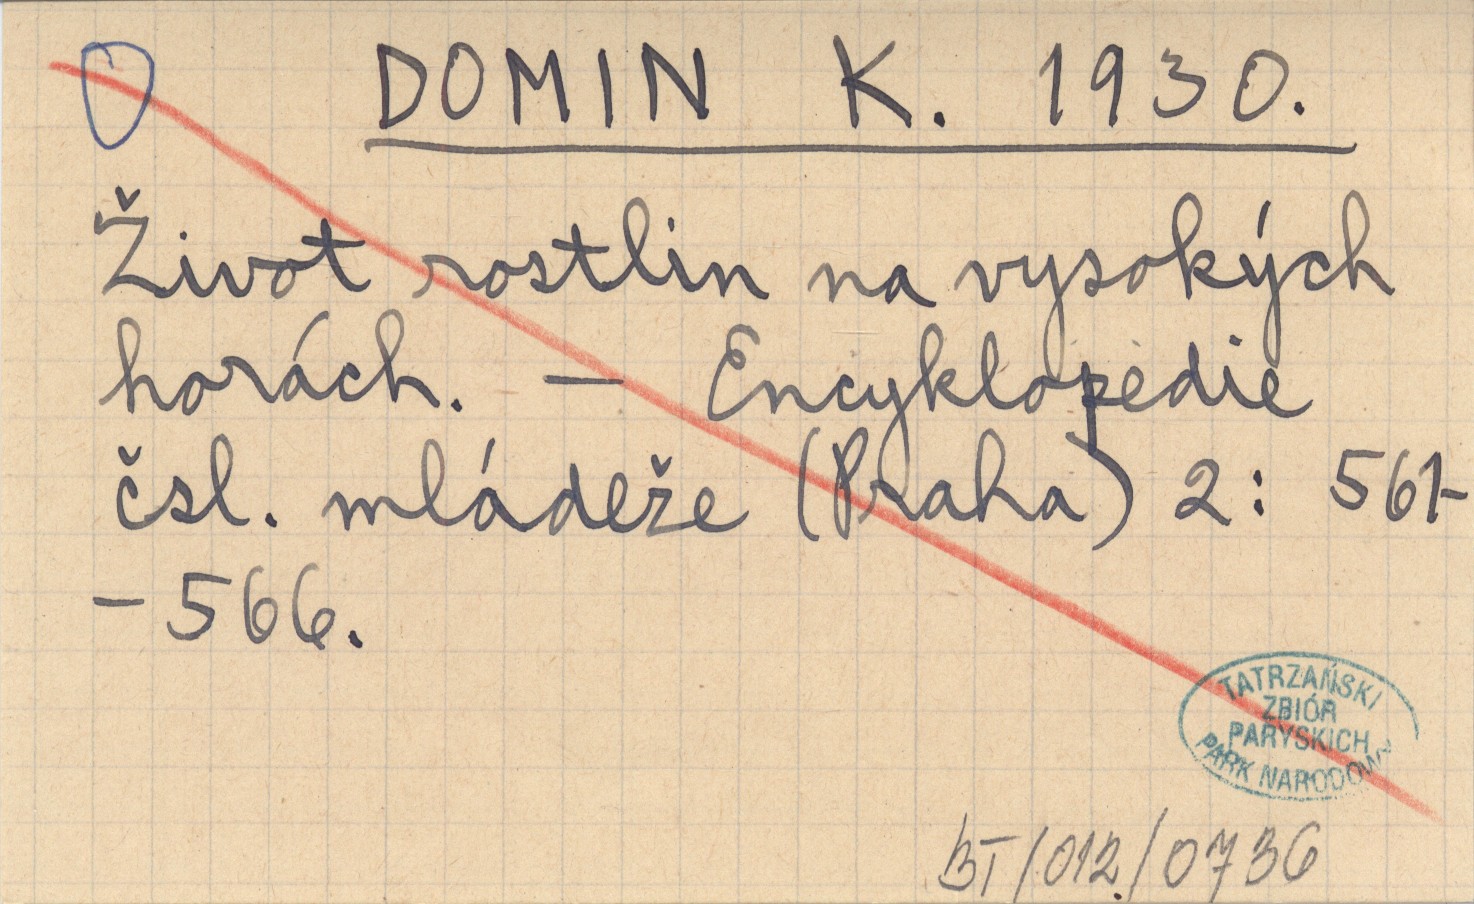 DOMIN K. 1930.
Život rostlin na vysokých
horách. — Encyklopedie
čsl. mládeže (Praha) 2: 561-
- 566.
TATRZAŃSKI
ZBIÓR
PARYSKICH
PARK NARODOWY
BT/012/0736